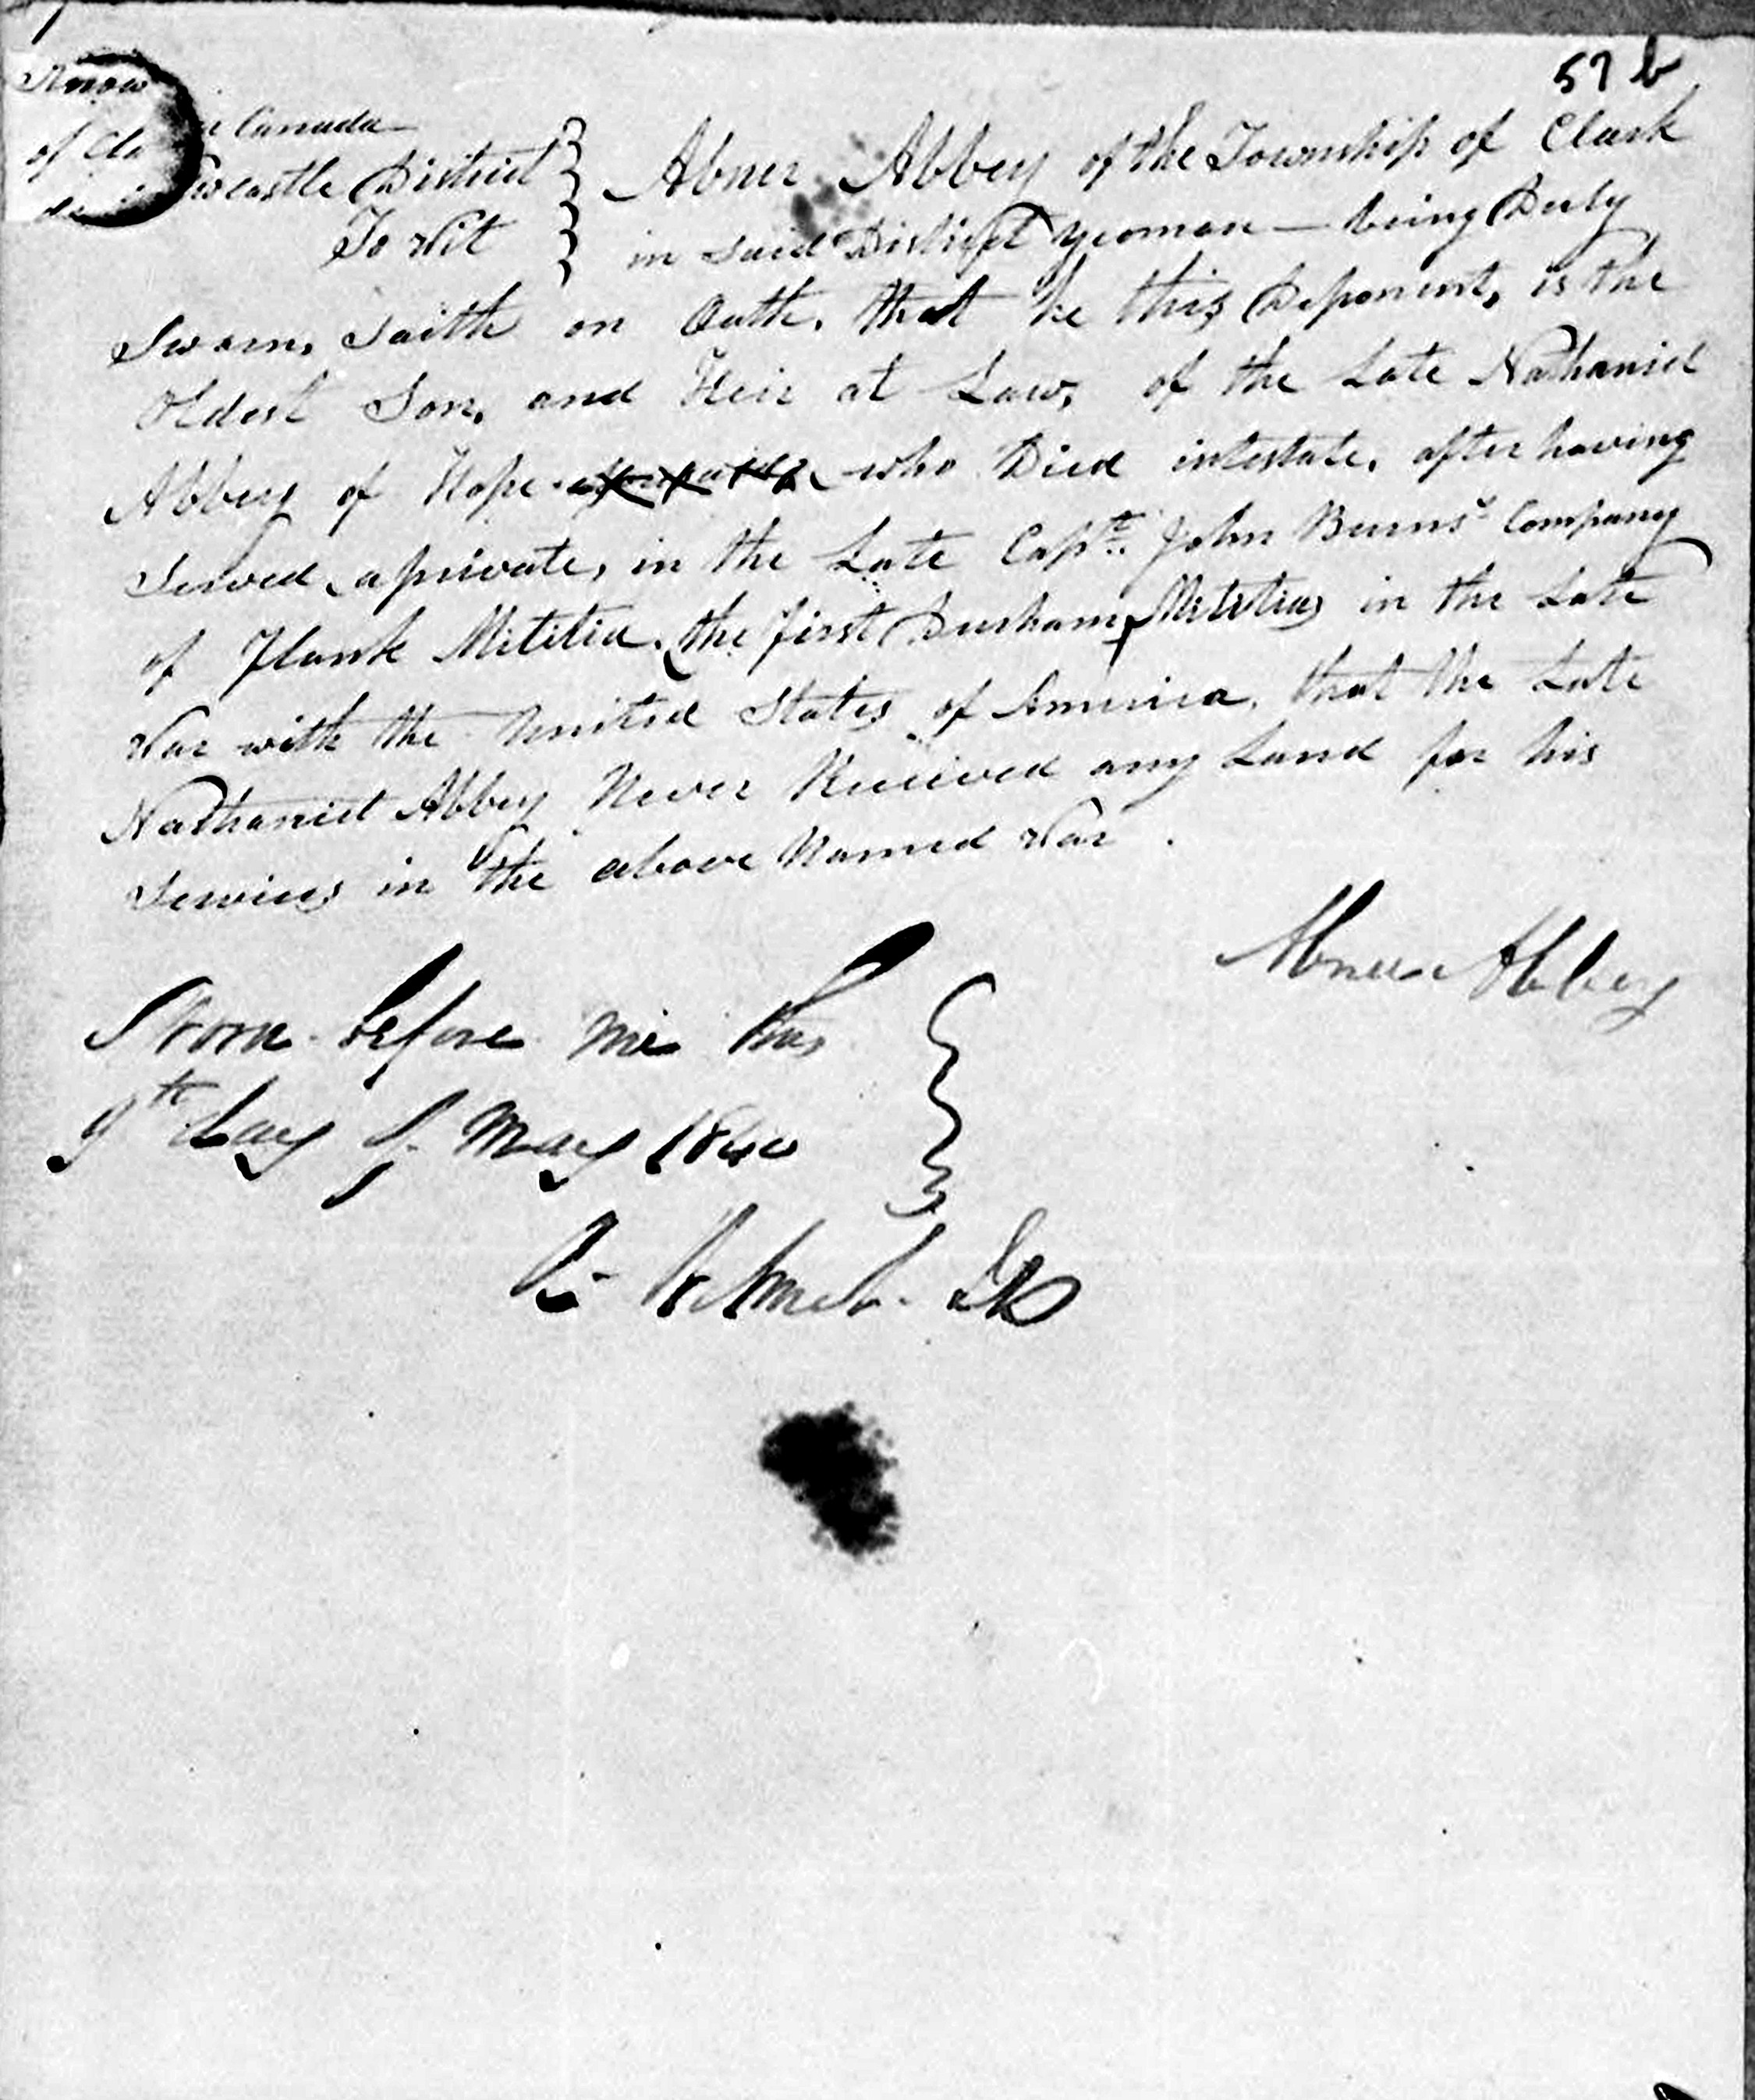 57 b
Know
of Cla
Canada
Newcastle District
To Wit
Abner Abbey of the Township of Clark
in said District Yeoman — being Duly
Sworn, Saith on Oath, that he this Deponent, is the
Oldest Son, and Heir at Law, of the Late Nathaniel
Abbey of Hope who Died intestate, after having
Served a private, in the Late Capt. John Burns' Company
of Flank Militia, the first Durham Militia, in the Late
War with the United States of America, that the Late
Nathaniel Abbey Never Received any Land for his
Services in the above Named War.
Abner Abbey
Sworn before me this
9th day of May 1840
JP